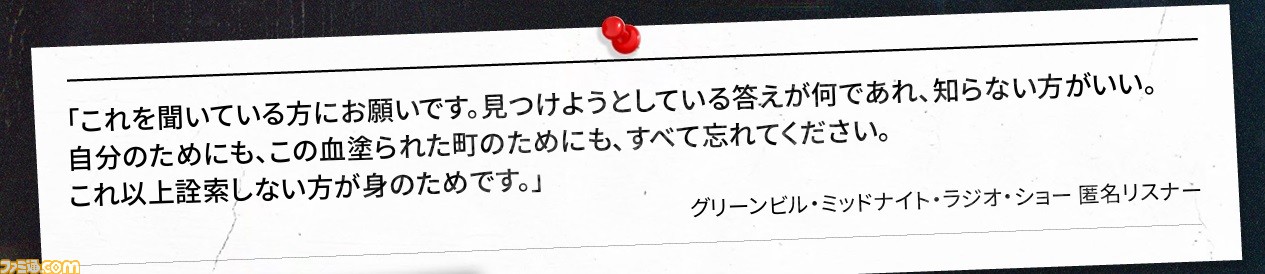 「これを聞いている方にお願いです。見つけようとしている答えが何であれ、知らない方がいい。
自分のためにも、この血塗られた町のためにも、すべて忘れてください。
これ以上詮索しない方が身のためです。」
グリーンビル・ミッドナイト・ラジオ・ショー 匿名リスナー
ファミ通.com